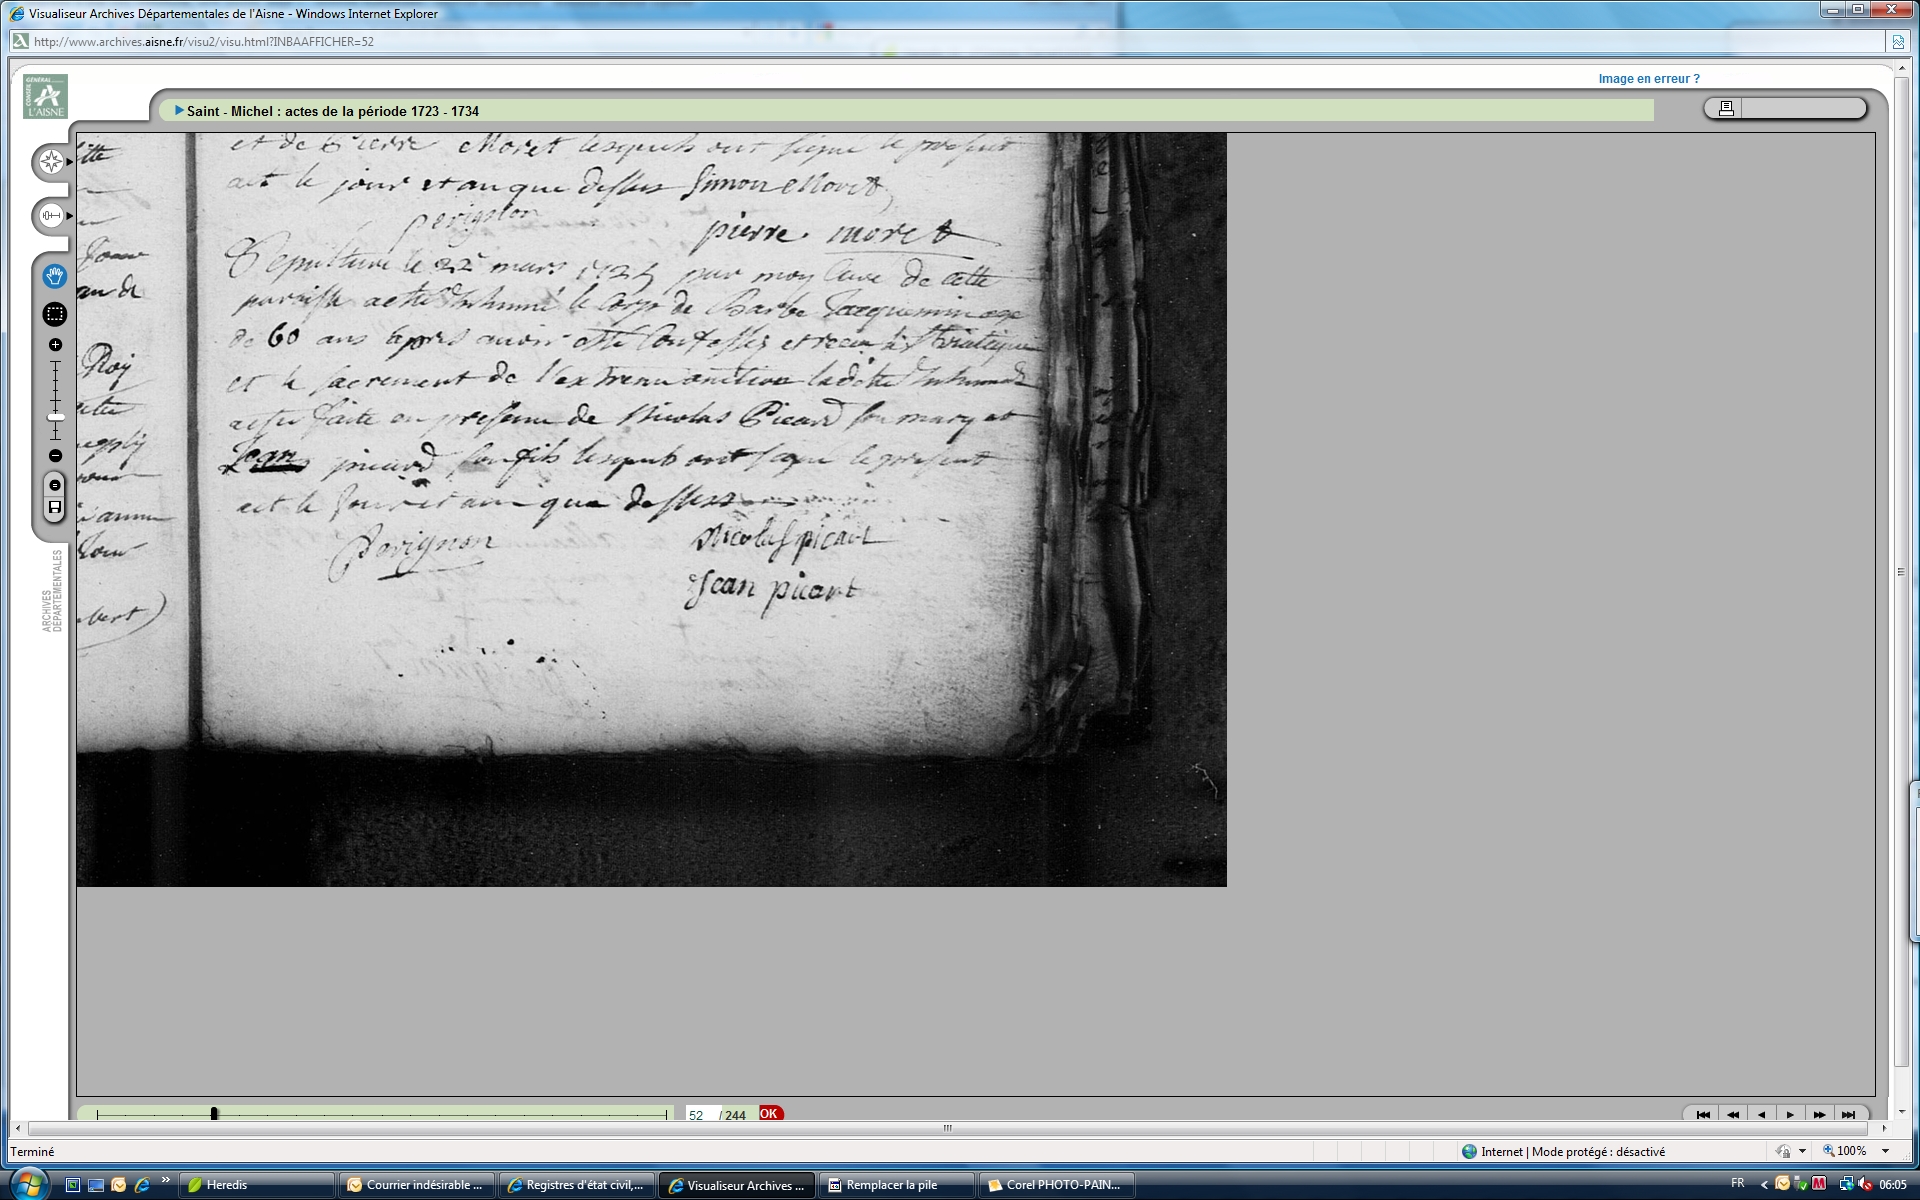 Visualiseur Archives Départementales de l'Aisne - Windows Internet Explorer
http://www.archives.aisne.fr/visu2/visu.html?INBAAFFICHER=52
Image en erreur ?
CONSEIL GÉNÉRAL
L'AISNE
Saint - Michel : actes de la période 1723 - 1734
et de Pierre Moret lesquels ont signé le present
act le jour et an que dessus Simon Moret
perignon
pierre moret
Sepulture le 22e mars 1725 par moy Curé de cette
paroisse a etté Inhumé le Corps de Barbe Jacquemin agé
de 60 ans apres avoir esté Confessez et recu le St Viatique
et le sacrement de l'extreme onction ladite Inhumation
faite en presence de Nicolas Picard son mary et
Jean picard son fils lesquels ont signé le present
act le Jour et an que dessus
Perignon
Nicolas picart
Jean picart
an de
Roy
ARCHIVES
DÉPARTEMENTALES
52 / 244 OK
Terminé
Internet | Mode protégé : désactivé
100%
Heredis
Courrier indésirable ...
Registres d'état civil,...
Visualiseur Archives ...
Remplacer la pile
Corel PHOTO-PAIN...
FR
06:05